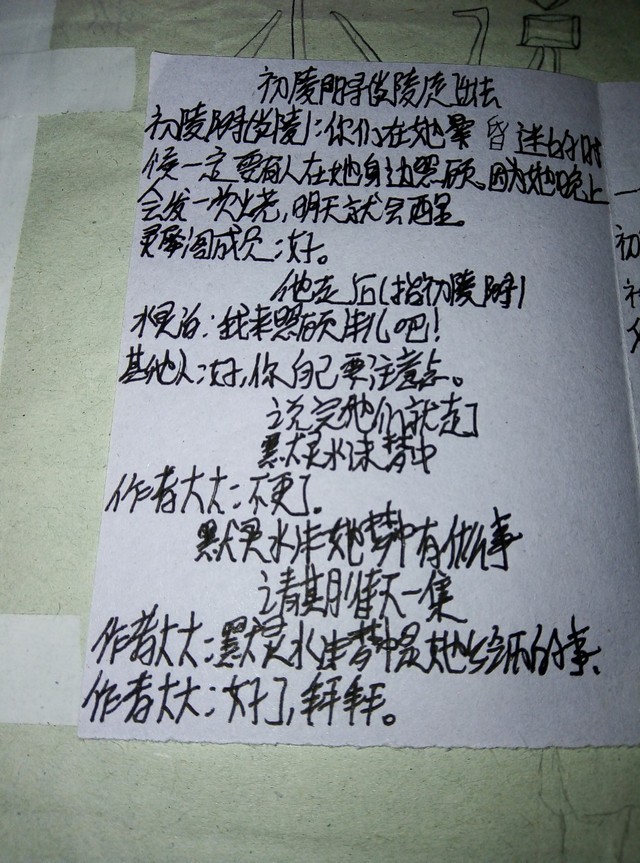 初陵
初陵:你们在她晕昏迷的时
候一定要有人在她身边照顾.因为她晚上
会发一次烧,明天就会醒.
灵 阁成员:好。
他走后(指初陵)
水灵治:我来照顾沫儿吧!
其他人:好,你自己要注意点。
说完他们就走了
默灵水沫梦中
作者大大:不更了.
默灵水沫她梦中有什么事
请期待下一集
作者大大:默灵水沫梦中是她经历的事、
作者大大:好了,拜拜。
初